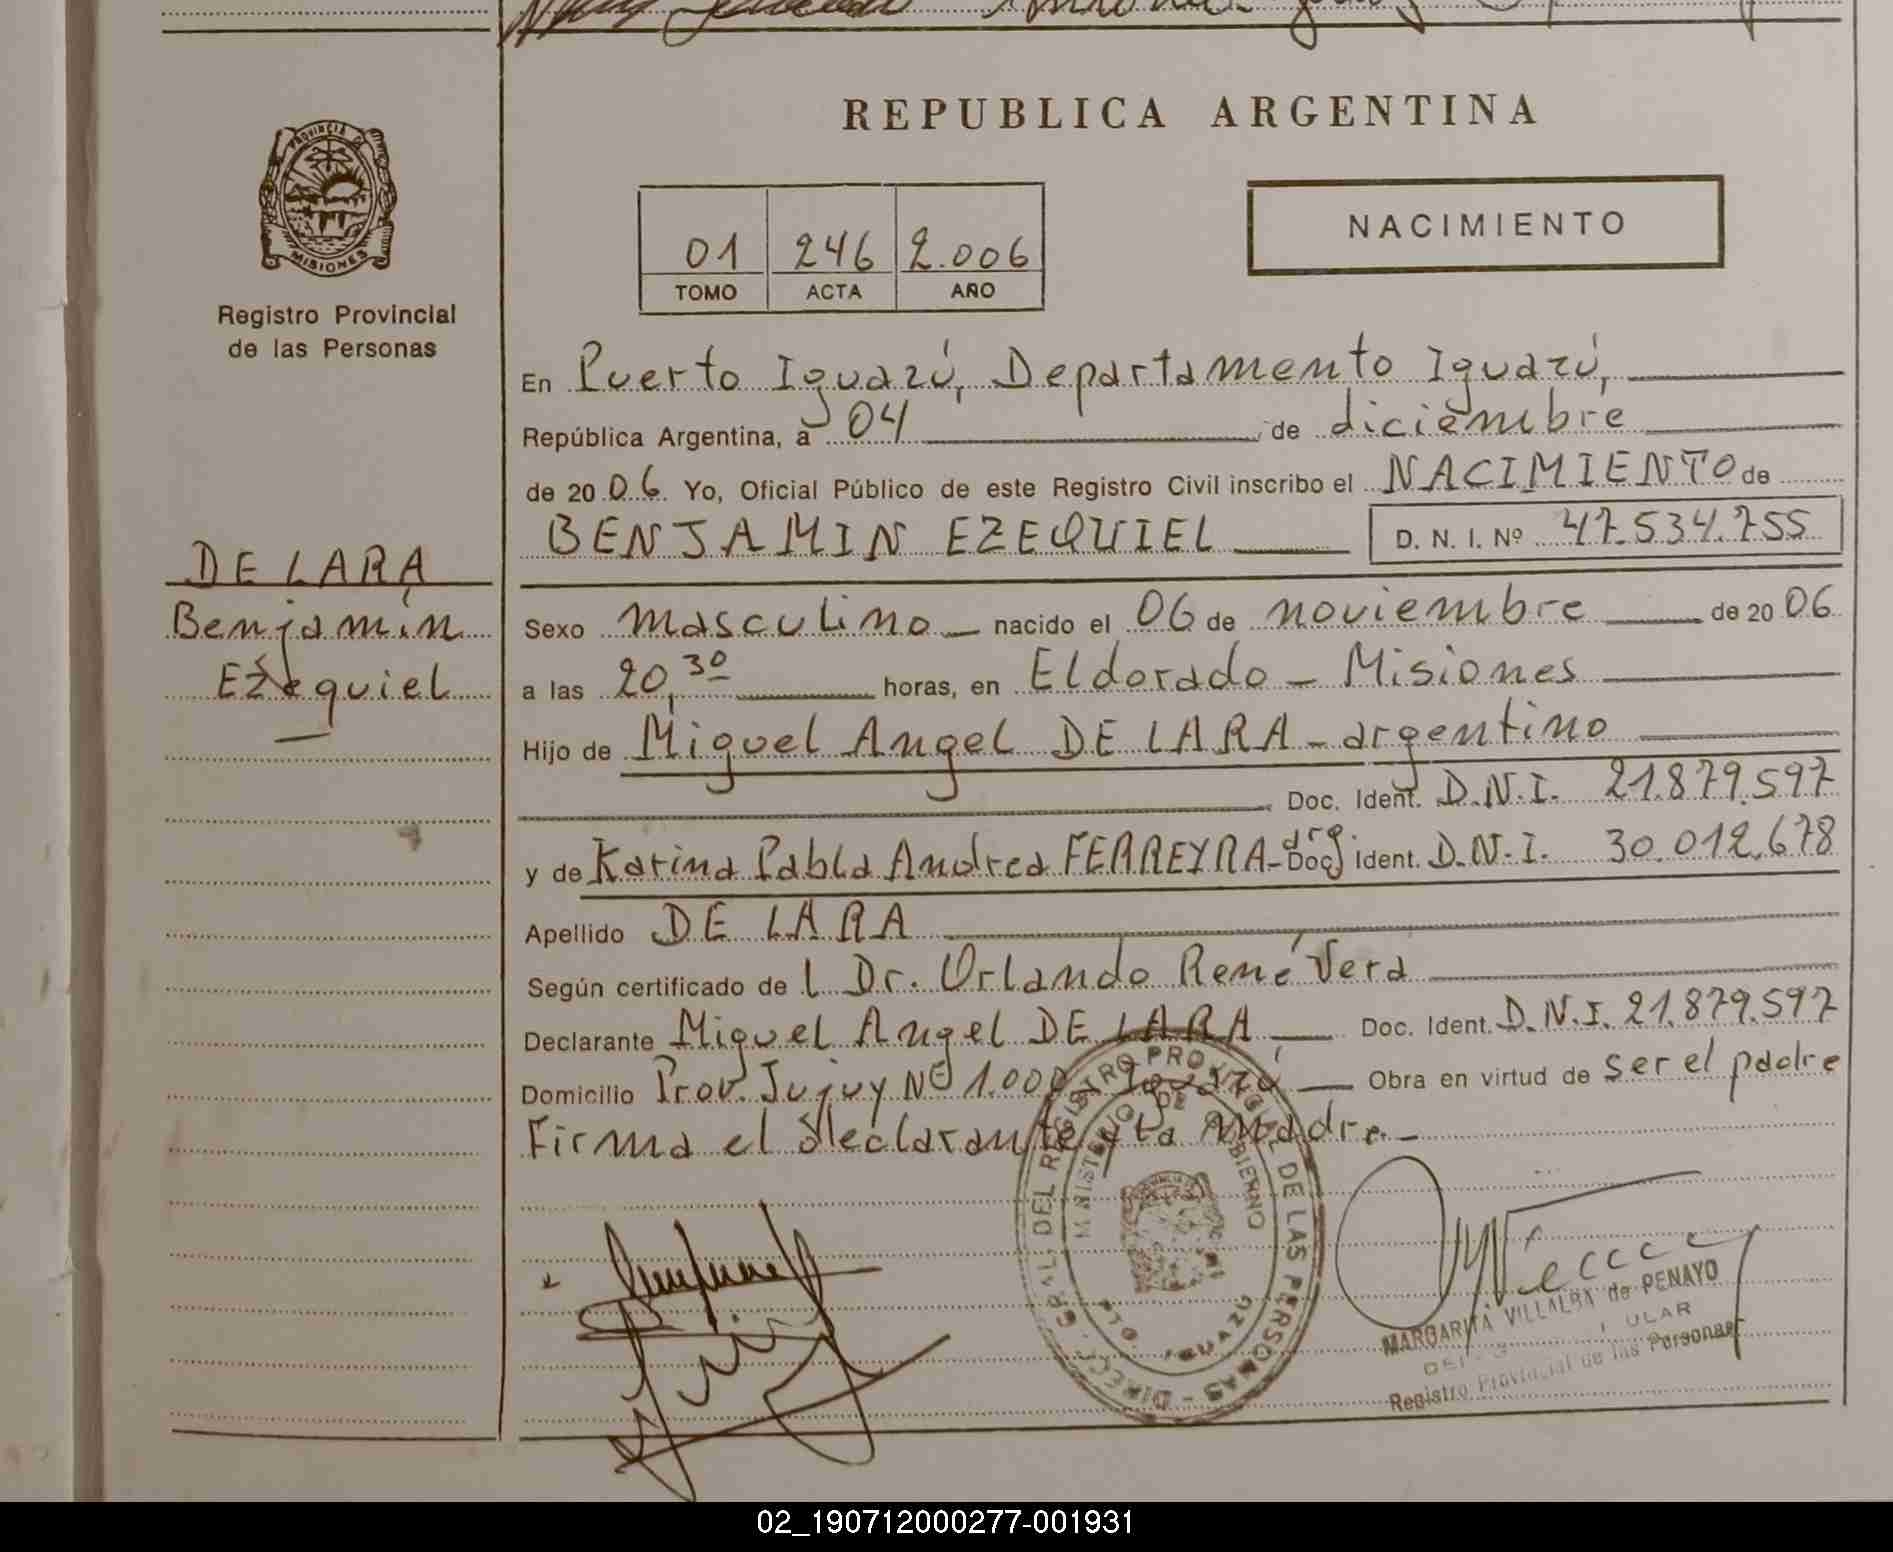 REPUBLICA ARGENTINA
PROVINCIA DE
MISIONES
Registro Provincial
de las Personas
01 246 2.006
TOMO ACTA AÑO
NACIMIENTO
En Puerto Iguazú, Departamento Iguazú,
República Argentina, a 04 de diciembre
de 20 06 Yo, Oficial Público de este Registro Civil inscribo el NACIMIENTO de
BENJAMIN EZEQUIEL D. N. I. Nº 47.534.755
DE LARA
Benjamín
Ezequiel
Sexo masculino nacido el 06 de noviembre de 20 06
a las 20,30 horas, en Eldorado - Misiones
Hijo de Miguel Angel DE LARA - argentino
Doc. Ident. D.N.I. 21.879.597
y de Karina Pabla Andrea FERREYRA - arg. Doc. Ident. D.N.I. 30.012.678
Apellido DE LARA
Según certificado de l Dr. Orlando René Vera
Declarante Miguel Angel DE LARA Doc. Ident. D.N.I. 21.879.597
Domicilio Prov. Jujuy Nº 1.000 Iguazú Obra en virtud de ser el padre
Firma el declarante y la madre.-
DIRECC. GRAL. DEL REGISTRO PROVINCIAL DE LAS PERSONAS -
MINISTERIO DE GOBIERNO
PTO. IGUAZU
MARGARITA VILLALBA de PENAYO
Registro Provincial de las Personas
02_190712000277-001931